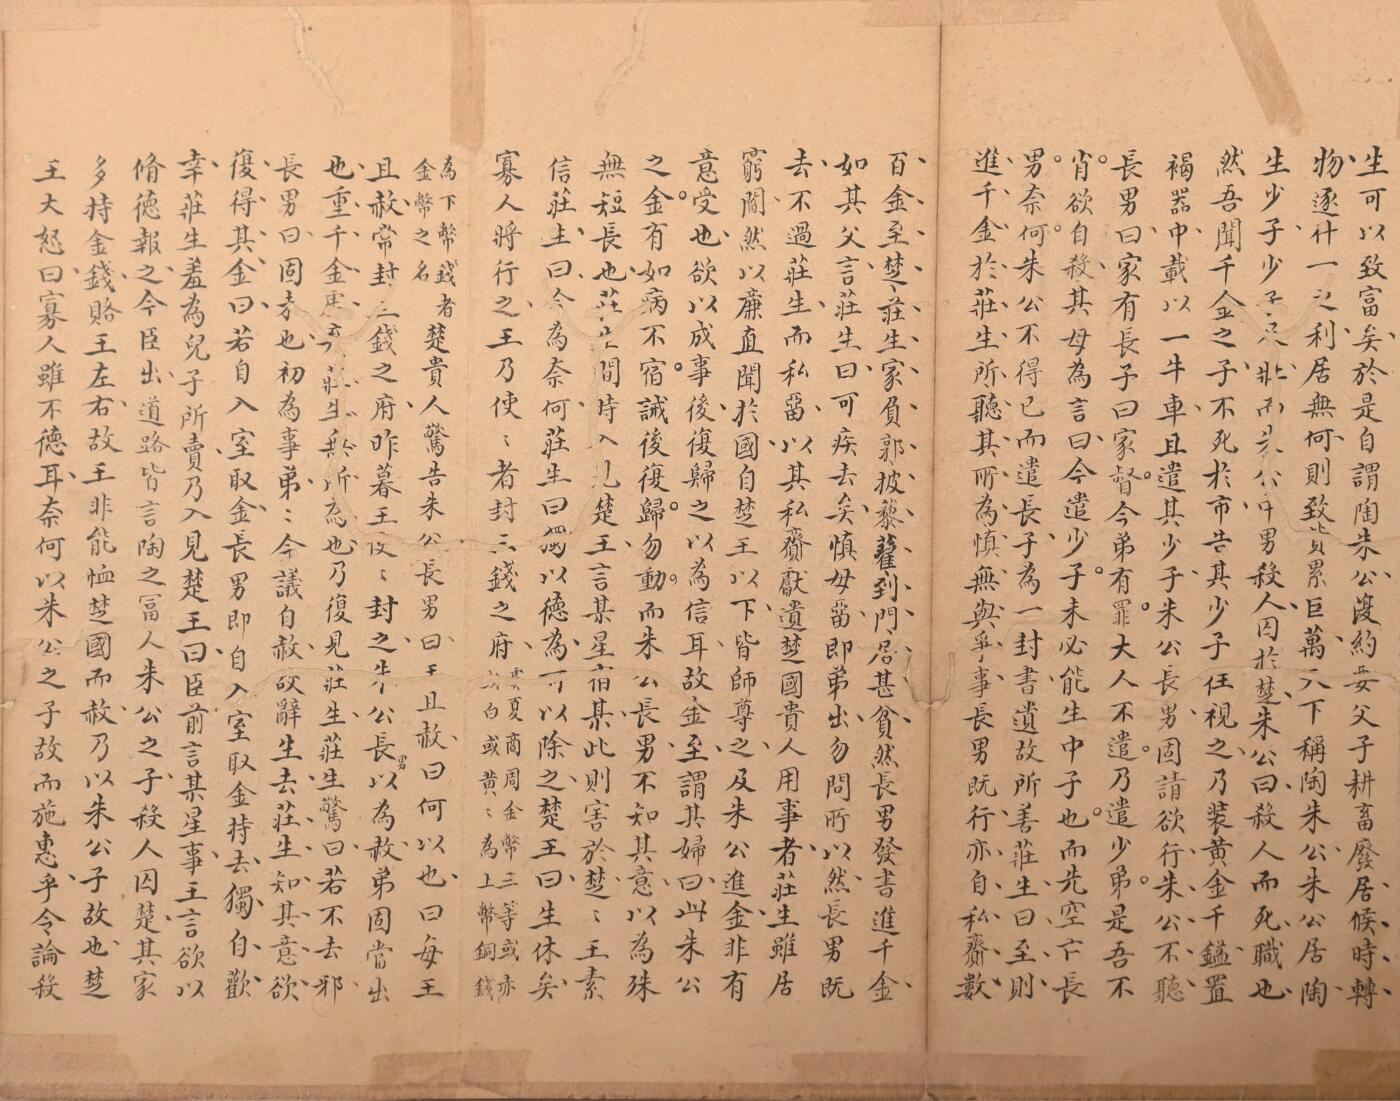 生可以致富矣於是自謂陶朱公復約要父子耕畜廢居候時轉
物逐什一之利居無何則致貲累巨萬天下稱陶朱公朱公居陶
生少子少子及壯而朱公中男殺人囚於楚朱公曰殺人而死職也
然吾聞千金之子不死於市告其少子往視之乃装黄金千鎰置
褐器中載以一牛車且遣其少子朱公長男固請欲行朱公不聽
長男曰家有長子曰家督今弟有罪大人不遣乃遣少弟是吾不
肖欲自殺其母為言曰今遣少子未必能生中子也而先空亡長
男奈何朱公不得已而遣長子為一封書遺故所善莊生曰至則
進千金於莊生所聽其所為慎無與爭事長男既行亦自私齎數
百金至楚莊生家負郭披藜藿到門居甚貧然長男發書進千金
如其父言莊生曰可疾去矣慎毋畱即弟出勿問所以然長男既
去不過莊生而私畱以其私齎獻遺楚國貴人用事者莊生雖居
窮閻然以廉直聞於國自楚王以下皆師尊之及朱公進金非有
意受也欲以成事後復歸之以為信耳故金至謂其婦曰此朱公
之金有如病不宿誡後復歸勿動而朱公長男不知其意以為殊
無短長也莊生間時入見楚王言某星宿某此則害於楚〻王素
信莊生曰今為奈何莊生曰獨以德為可以除之楚王曰生休矣
寡人將行之王乃使〻者封三錢之府虞夏商周金幣三等或赤
或白或黄〻為上幣銅錢
為下幣錢者
金幣之名
楚貴人驚告朱公長男曰王且赦曰何以也曰每王
且赦常封三錢之府昨暮王使〻封之朱公長男以為赦弟固當出
也重千金虛棄莊生無所為也乃復見莊生莊生驚曰若不去邪
長男曰固未也初為事弟〻今議自赦故辭生去莊生知其意欲
復得其金曰若自入室取金長男即自入室取金持去獨自歡
幸莊生羞為兒子所賣乃入見楚王曰臣前言某星事王言欲以
脩德報之今臣出道路皆言陶之冨人朱公之子殺人囚楚其家
多持金錢賂王左右故王非能恤楚國而赦乃以朱公子故也楚
王大怒曰寡人雖不德耳奈何以朱公之子故而施惠乎令論殺